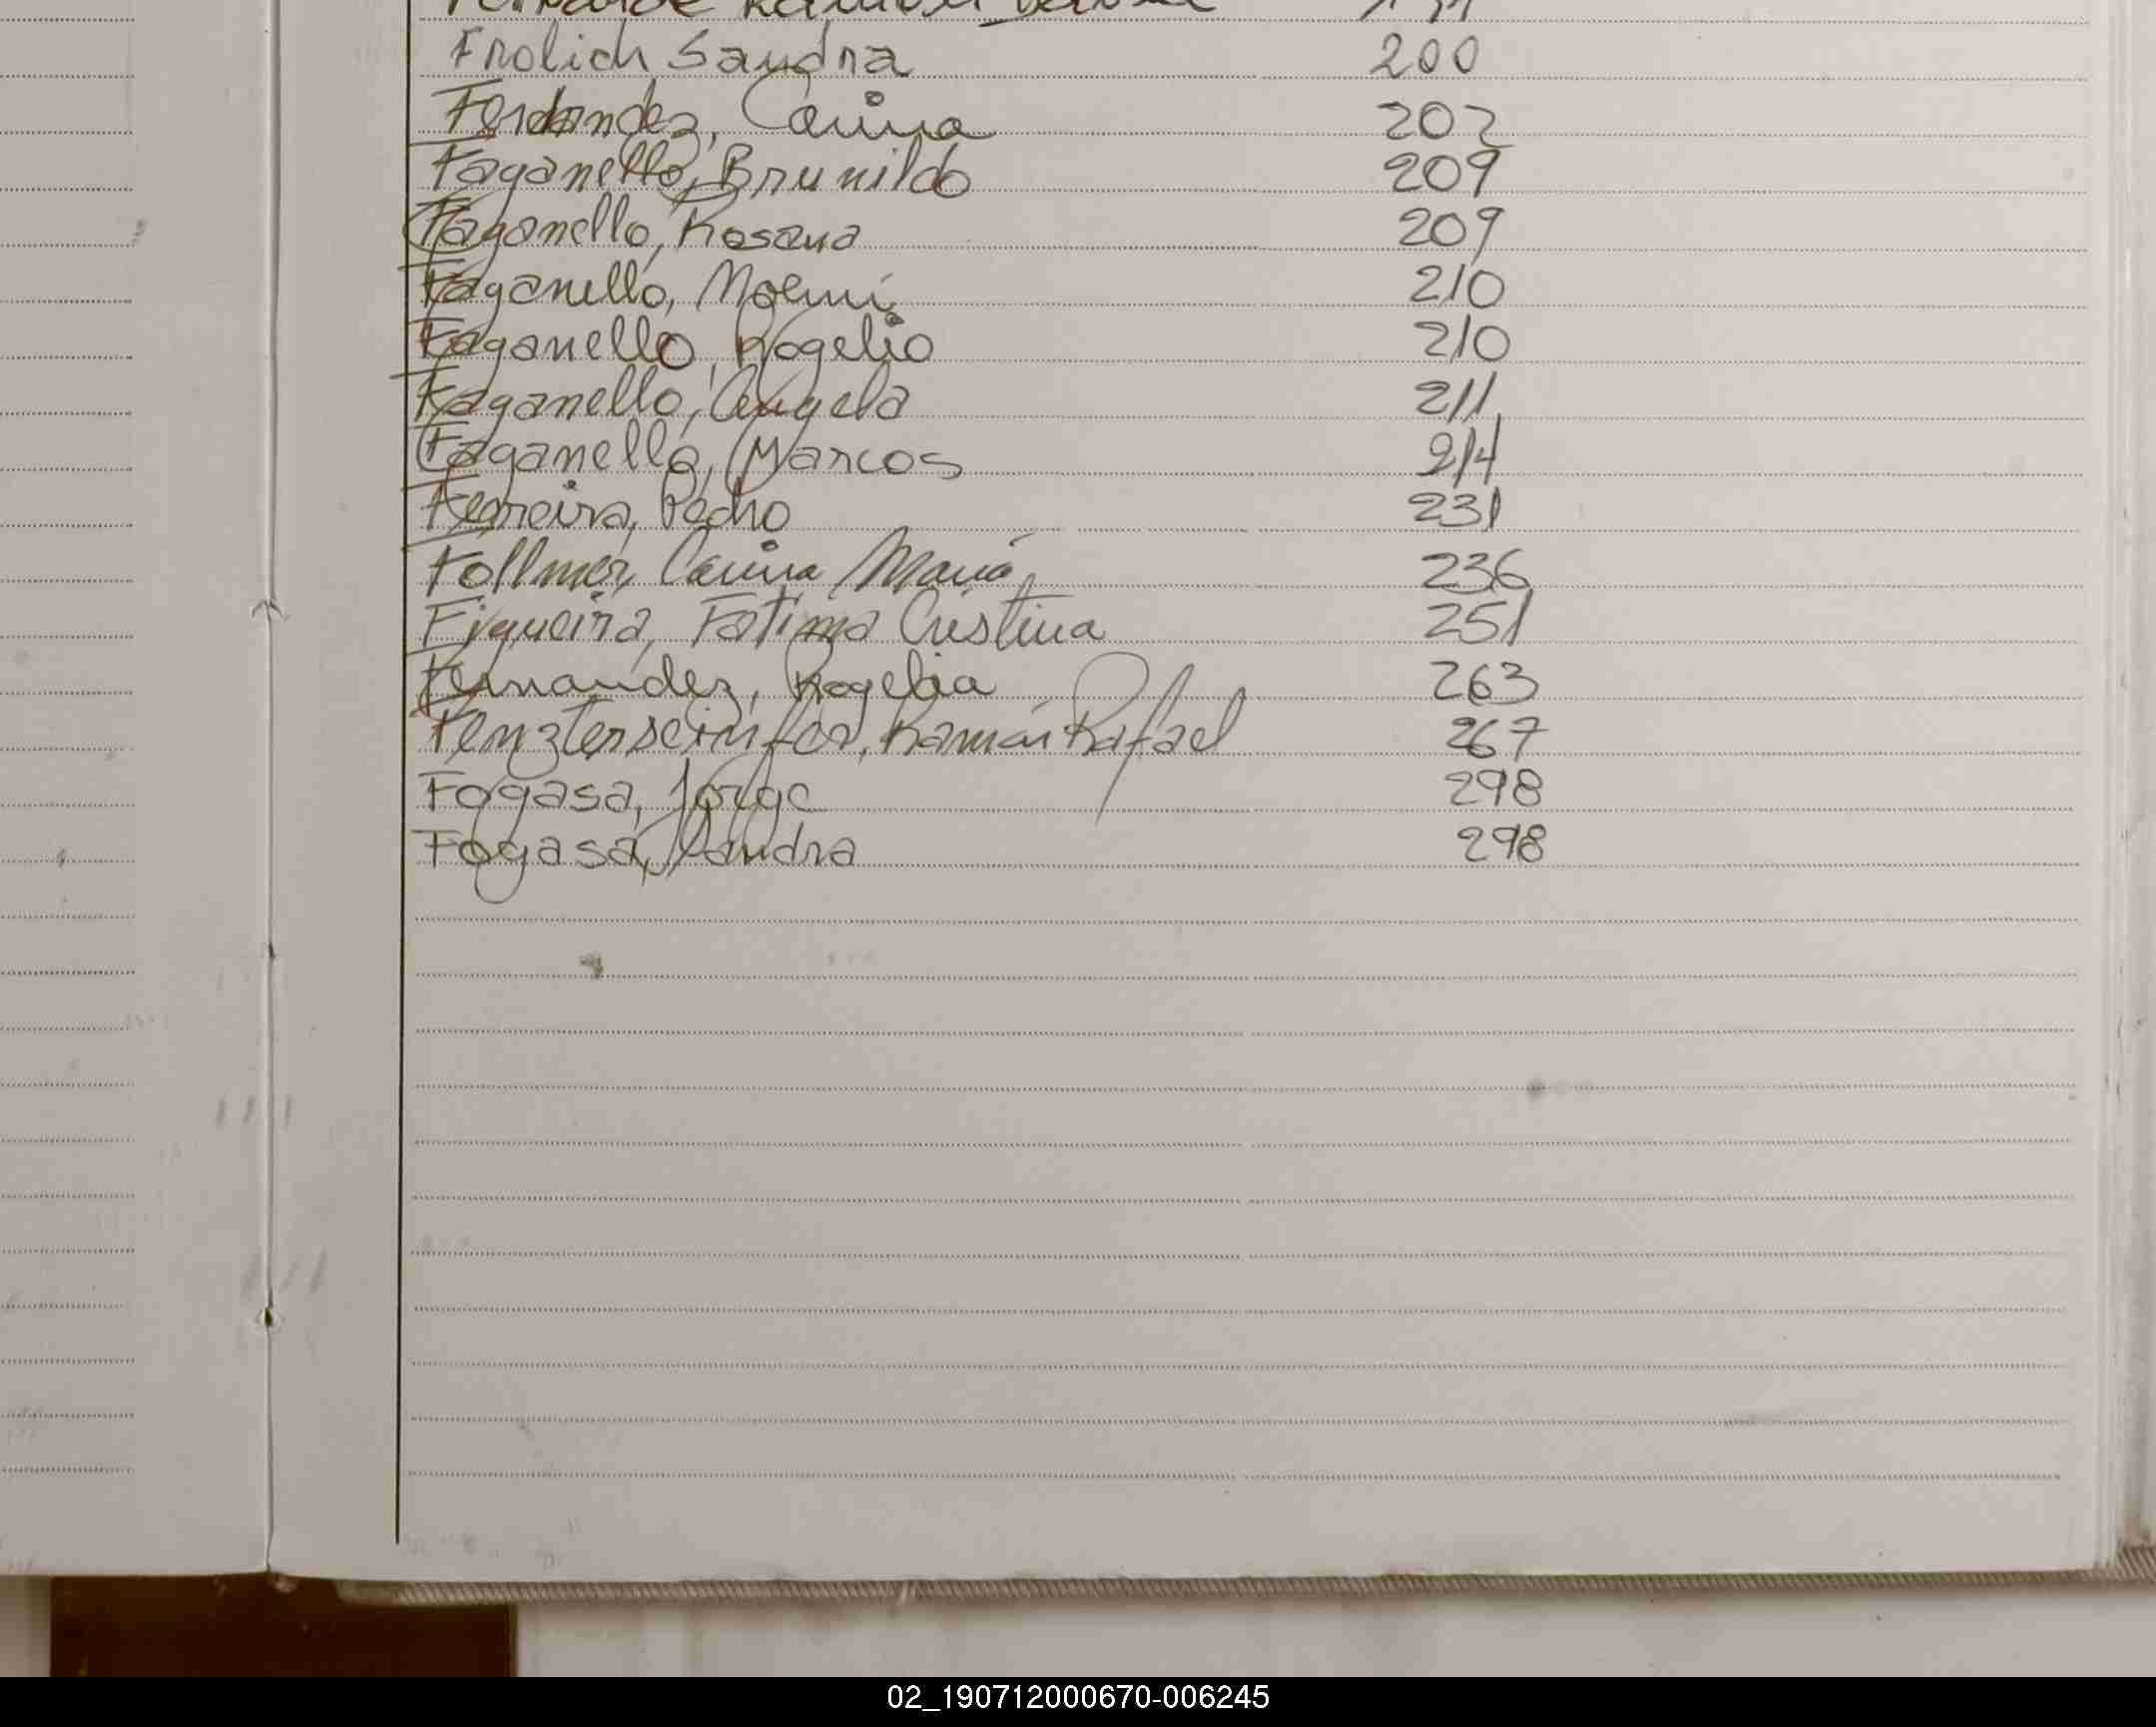 Frolich Sandra 200
Ferdandez, Carina 202
Faganello, Brunildo 209
Faganello, Rosana 209
Faganello, Noemí 210
Faganello, Rogelio 210
Faganello, Angela 211
Faganello, Marcos 214
Ferreira, Pedro 231
Follmer, Carina María 236
Figueira, Fatima Cristina 251
Fernandez, Rogelia 263
Ramón Rafael 267
Fogasa, Jorge 298
Fogasa, Sandra 298
02_190712000670-006245